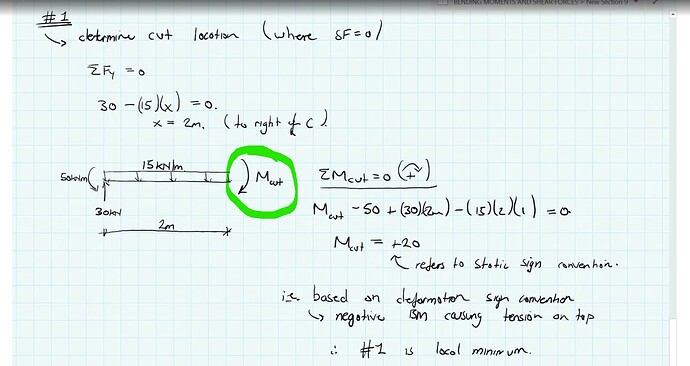 BENDING MOMENTS AND SHEAR FORCES > New Section 9
#1
↳ determine cut location (where SF=0)
ΣFy = 0
30 - (15)(x) = 0.
x = 2m. (to right of C).
15kN/m
50kNm
Mcut
30kN
2m
ΣMcut = 0 (+)
Mcut - 50 + (30)(2m) - (15)(2)(1) = 0
Mcut = +20
↖ refers to static sign convention.
i.e. based on deformation sign convention
↳ negative BM causing tension on top
∴ #1 is local minimum.